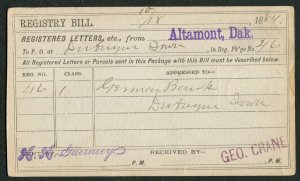 10/18 1884.
REGISTRY BILL.
REGISTERED LETTERS, etc., from Altamont, Dak.
To P. O. at Dubuque Iowa in Reg. Pk'ge No. 46
All Registered Letters or Parcels sent in this Package with this Bill must be described below.
REG. NO. CLASS. ADDRESSED TO—
46 1 German Bank
Dubuque Iowa
H. H. Guernsey
P. M.
RECEIVED BY—
GEO. CRANE
P. M.